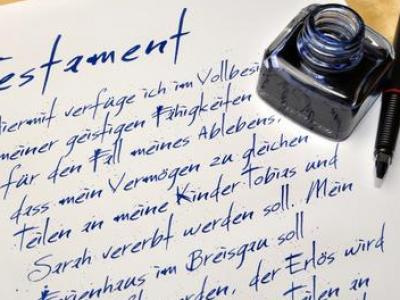 estament
iermit verfüge ich im Vollbesi
meiner geistigen Fähigkeiten
für den Fall meines Ablebens,
dass mein Vermögen zu gleichen
Teilen an meine Kinder Tobias und
Sarah vererbt werden soll. Mein
Ferienhaus im Breisgau soll
werden, der Erlös wird
teilen an